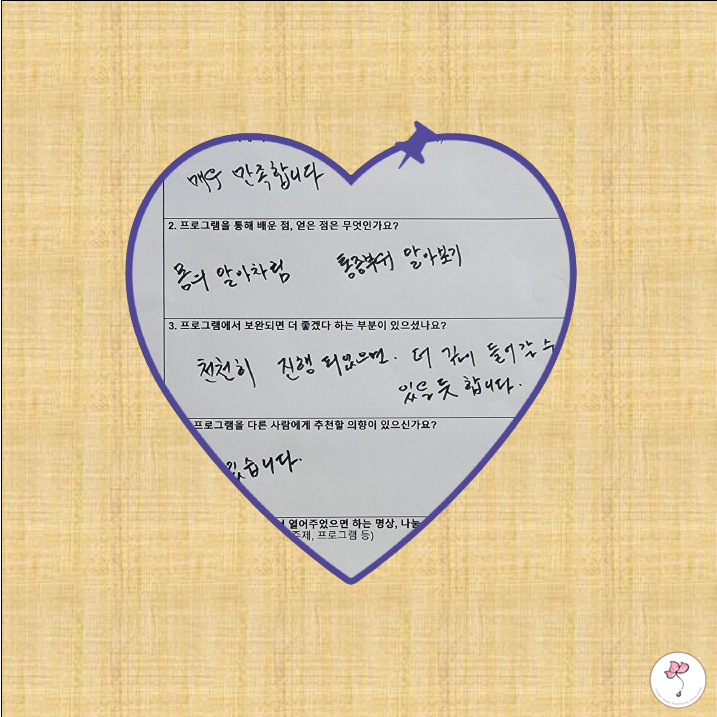 매우 만족합니다
2. 프로그램을 통해 배운 점, 얻은 점은 무엇인가요?
몸의 알아차림 통증부위 알아보기
3. 프로그램에서 보완되면 더 좋겠다 하는 부분이 있으셨나요?
천천히 진행 되었으면. 더 깊이 들어갈 수
있을 듯 합니다.
프로그램을 다른 사람에게 추천할 의향이 있으신가요?
있습니다.
열어주었으면 하는 명상, 나눔
주제, 프로그램 등)